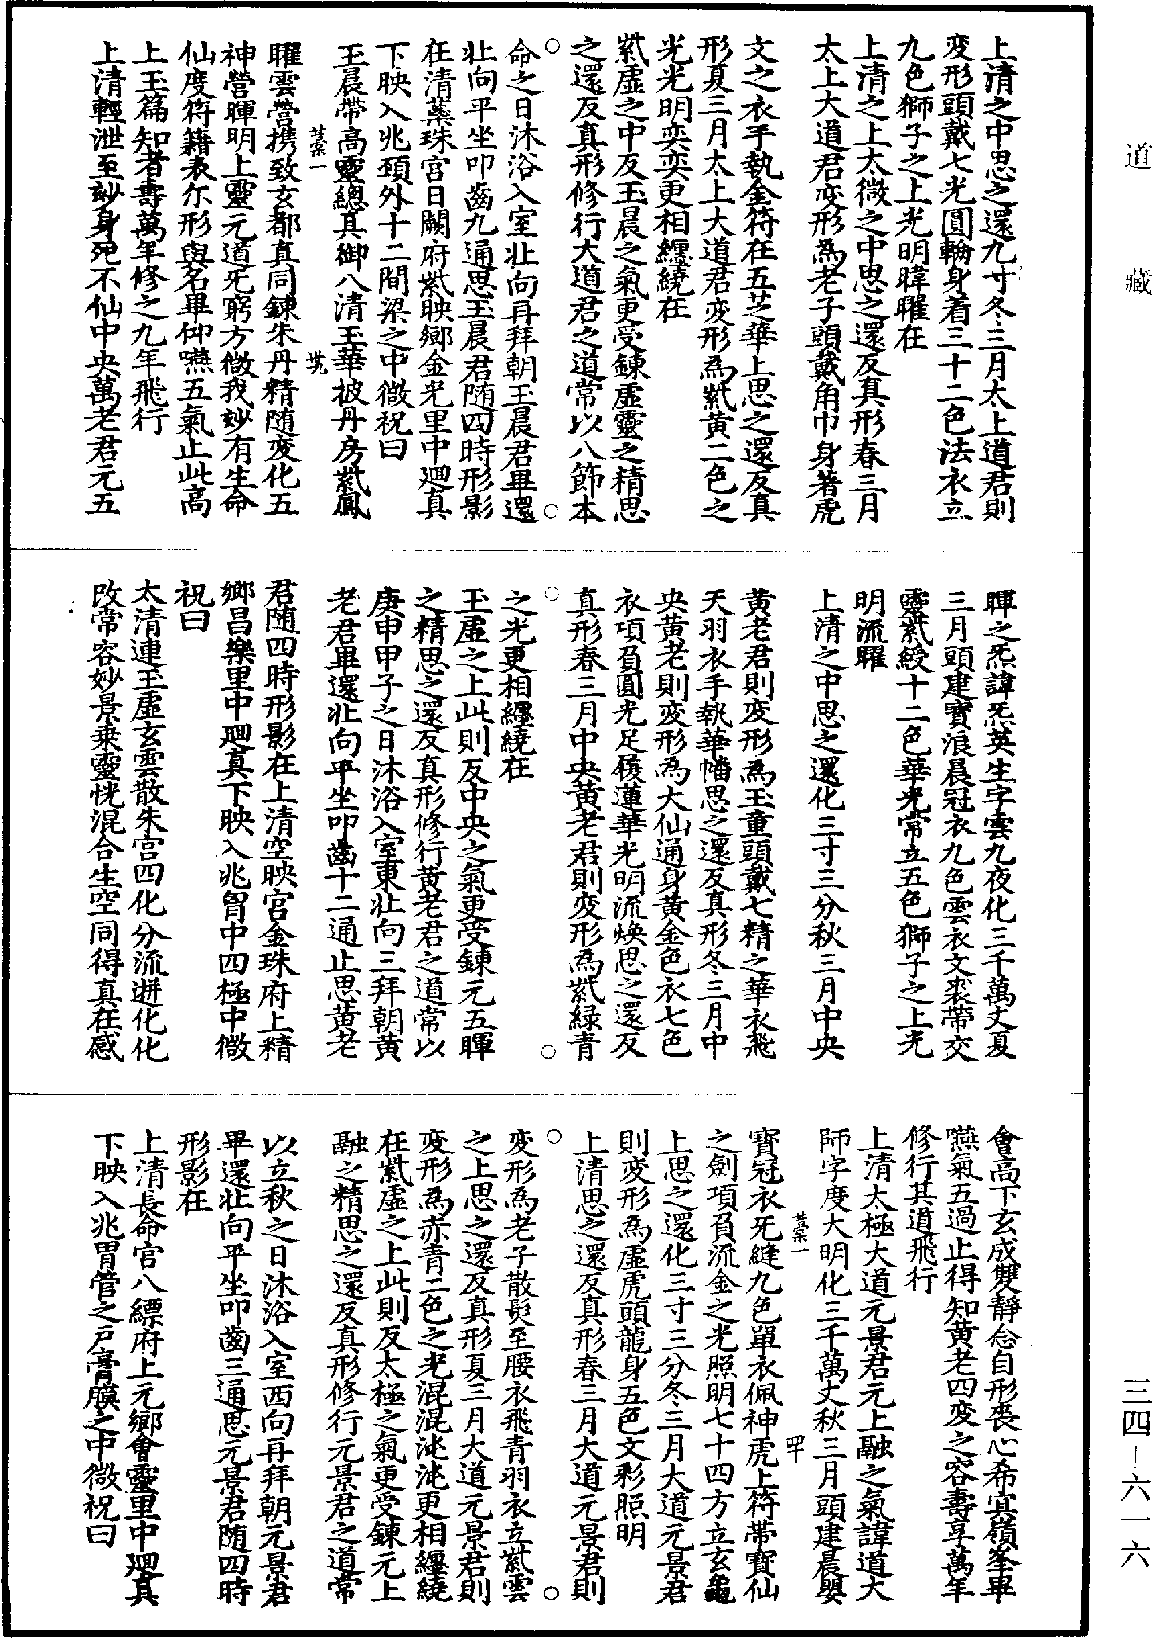 道藏
三四－六一六
上清之中思之還九寸冬三月太上道君則
変形頭戴七光圓輪身着三十二色法衣立
九色獅子之上光明暐曜在
上清之上太微之中思之還反真形春三月
太上大道君変形為老子頭戴角巾身著虎
文之衣手執金符在五芝華上思之還反真
形夏三月太上大道君変形為紫黃二色之
光光明奕奕更相纏繞在
紫虛之中反玉晨之氣更受鍊虛靈之精思
之還反真形修行大道君之道常以八節本
命之日沐浴入室北向再拜朝玉晨君畢還
北向平坐叩齒九通思玉晨君随四時形影
在清蘂珠宮日闕府紫映鄉金光里中廻真
下映入兆頚外十二間梁之中微祝曰
玉晨帶高靈總真御八清玉華披丹房紫鳳
曜雲營携致玄都真同鍊朱丹精随変化五
神營暉明上靈元道无窮方微我妙有生命
仙度符籍表尔形與名畢仰嚥五氣止此高
上玉篇知者壽萬年修之九年飛行
上清輕泄至妙身死不仙中央萬老君元五
暉之炁諱炁英生字雲九夜化三千萬丈夏
三月頭建寶浪晨冠衣九色雲衣文裘帶交
靈紫綬十二色華光常立五色獅子之上光
明流曜
上清之中思之還化三寸三分秋三月中央
黃老君則変形為玉童頭戴七精之華衣飛
天羽衣手執華幡思之還反真形冬三月中
央黃老則変形為大仙通身黃金色衣七色
衣項負圓光足履蓮華光明流煥思之還反
真形春三月中央黃老君則変形為紫緑青
之光更相纏繞在
玉虛之上此則反中央之氣更受鍊元五暉
之精思之還反真形修行黃老君之道常以
庚申甲子之日沐浴入室東北向三拜朝黃
老君畢還北向平坐叩齒十二通止思黃老
君随四時形影在上清空映宮金珠府上精
鄉昌樂里中廻真下映入兆胃中四極中微
祝曰
太清連玉虛玄雲散朱宮四化分流迸化化
改常容妙景乗靈恍混合生空同得真在感
會高下玄成雙靜念自形喪心希寘嶺峯畢
嚥氣五過止得知黃老四変之容壽享萬年
修行其道飛行
上清太極大道元景君元上融之氣諱道大
師字度大明化三千萬丈秋三月頭建晨嬰
寶冠衣无縫九色單衣佩神虎上符帶寶仙
之劍項負流金之光照明七十四方立玄龜
上思之還化三寸三分冬三月大道元景君
則変形為虛虎頭龍身五色文彩照明
上清思之還反真形春三月大道元景君則
変形為老子散髮至腰衣飛青羽衣立紫雲
之上思之還反真形夏三月大道元景君則
変形為赤青二色之光混混沌沌更相纏繞
在紫虛之上此則反太極之氣更受鍊元上
融之精思之還反真形修行元景君之道常
以立秋之日沐浴入室西向再拜朝元景君
畢還北向平坐叩齒三通思元景君随四時
形影在
上清長命宮八縹府上元鄉會靈里中廻真
下映入兆胃管之戶膏膜之中微祝曰